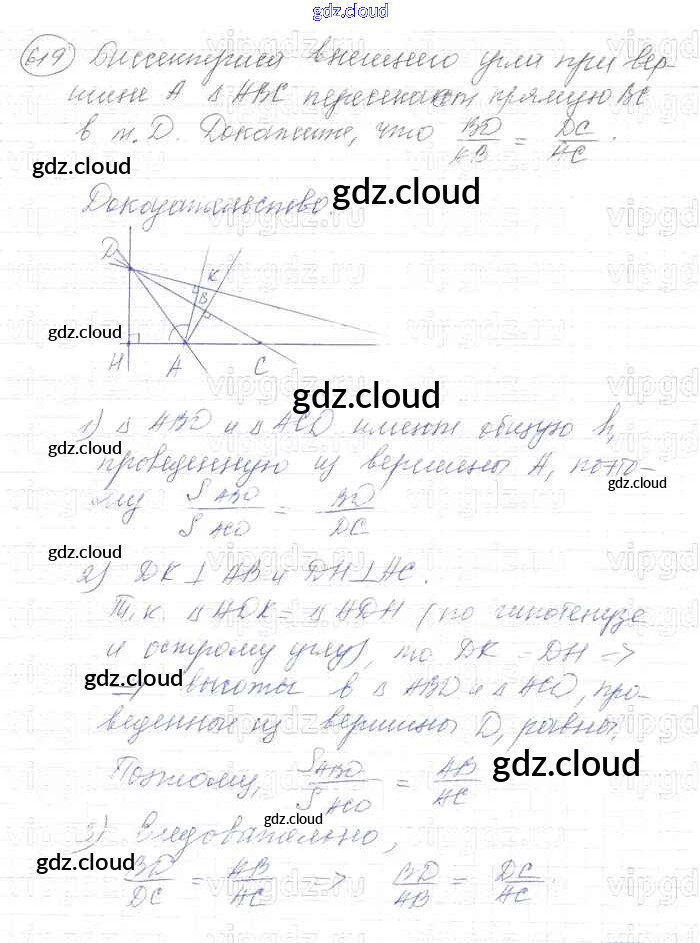 gdz.cloud
619 Биссектриса внешнего угла при вер-
шине A △ ABC пересекает прямую BC
в т. D. Докажите, что BD/AB = DC/AC.
gdz.cloud
gdz.cloud
Доказательство.
D K B
gdz.cloud
H A C
gdz.cloud
1) △ ABD и △ ACD имеют общую h,
проведенную из вершины A, поэто-
gdz.cloud
му S ABD / S ACD = BD/DC
gdz.cloud
2) DK ⊥ AB и DH ⊥ AC.
Т.к. △ ADK = △ ADH (по гипотенузе
и острому углу), то DK = DH =>
gdz.cloud
=> высоты в △ ABD и △ ACD, про-
веденные из вершины D, равны.
Поэтому, S ABD / S ACD = AB/AC
gdz.cloud
3) Следовательно,
gdz.cloud
gdz.cloud
BD/DC = AB/AC => BD/AB = DC/AC.